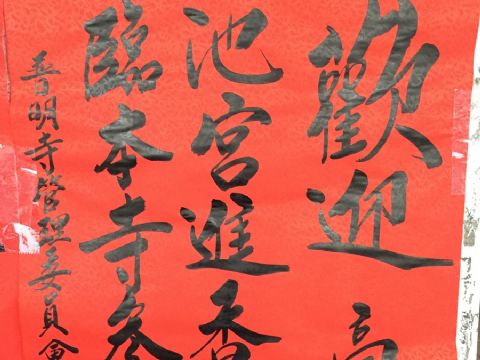 歡迎高
池宮進香
臨本寺參
普明寺管理委員會